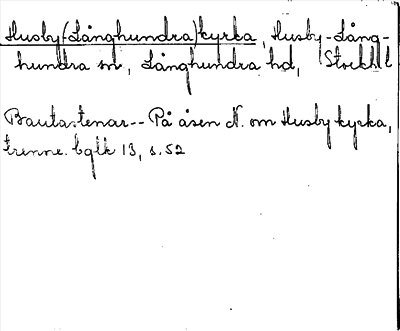 Husby(Långhundra)kyrka, Husby-Lång-
hundra sn, Långhundra hd, Stockh l
Bautastenar-- På åsen N. om Husby kyrka,
trenne. bglk 13, s.52